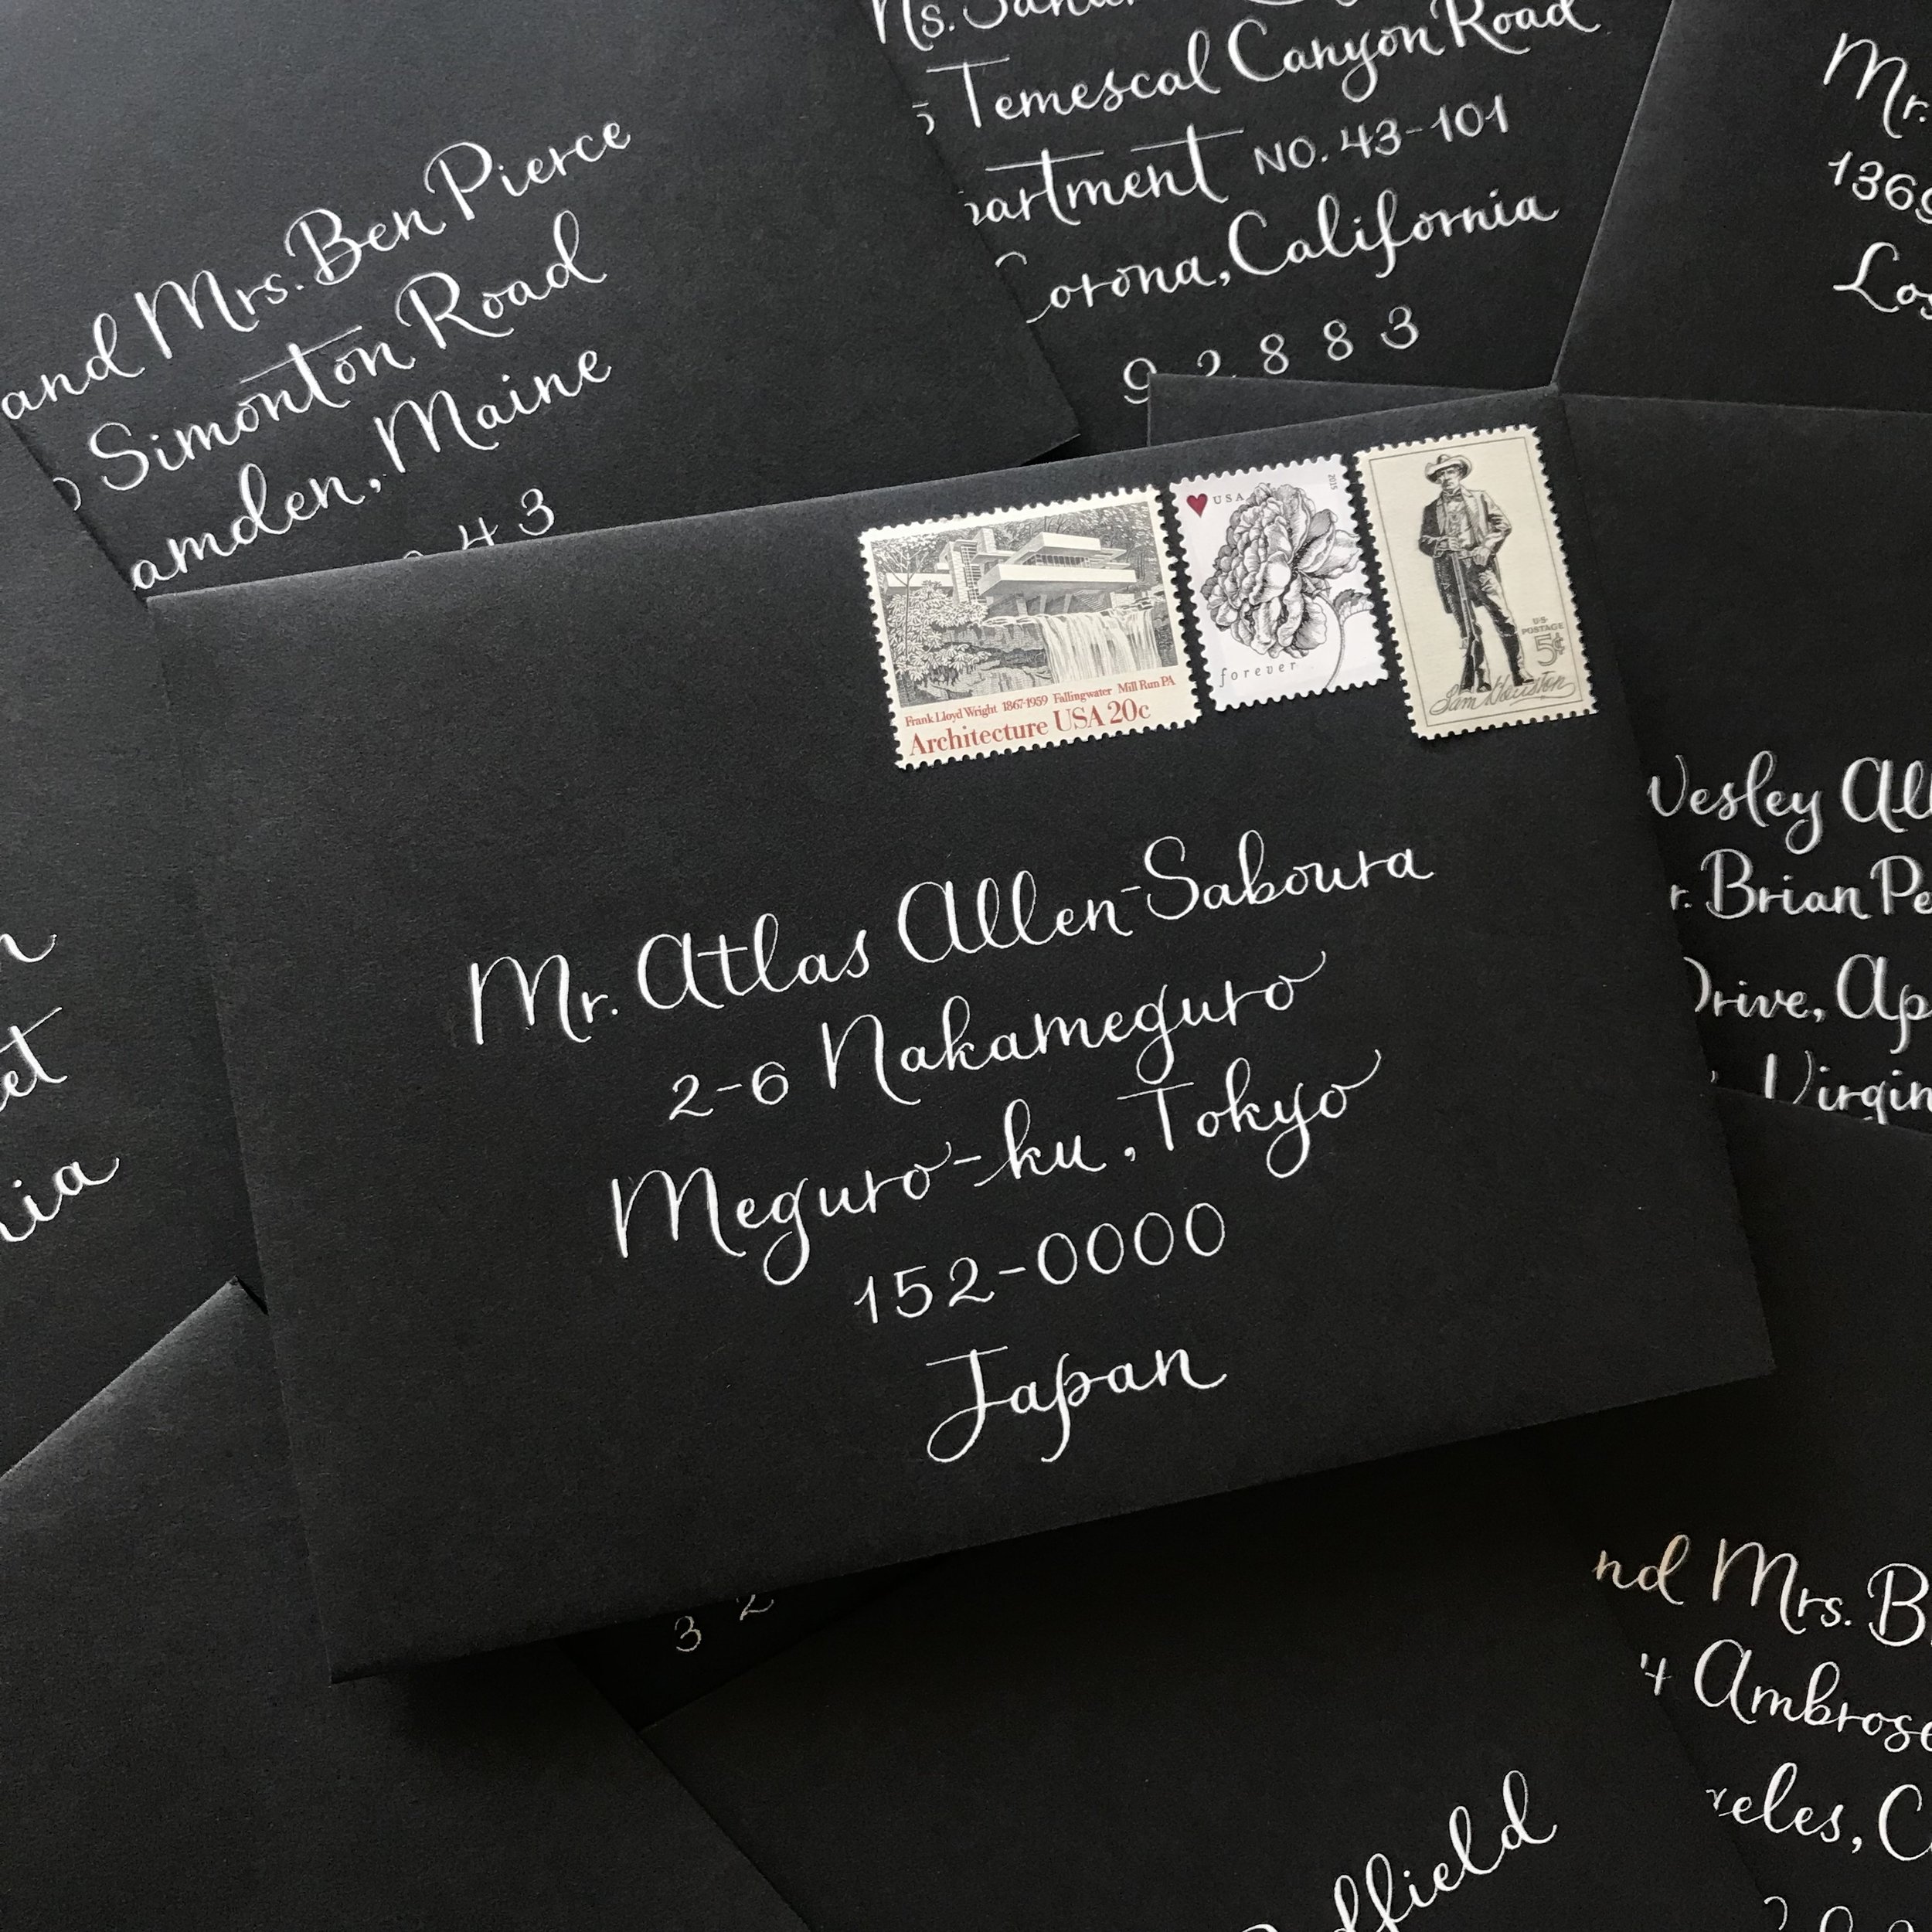 and Mrs. Ben Pierce
Simonton Road
amden, Maine
43
Temescal Canyon Road
artment NO. 43-101
Corona, California
92883
Mr.
136
Lo
USA
2015
forever
US POSTAGE
5¢
Sam Houston
Frank Lloyd Wright 1867-1959 Fallingwater Mill Run PA
Architecture USA 20c
Mr. Atlas Allen-Saboura
2-6 Nakameguro
Meguro-ku, Tokyo
152-0000
Japan
Wesley All
r. Brian Pe
Drive, Ap
Virgin
et
ia
32
nd Mrs. B
4 Ambrose
eles, C
field